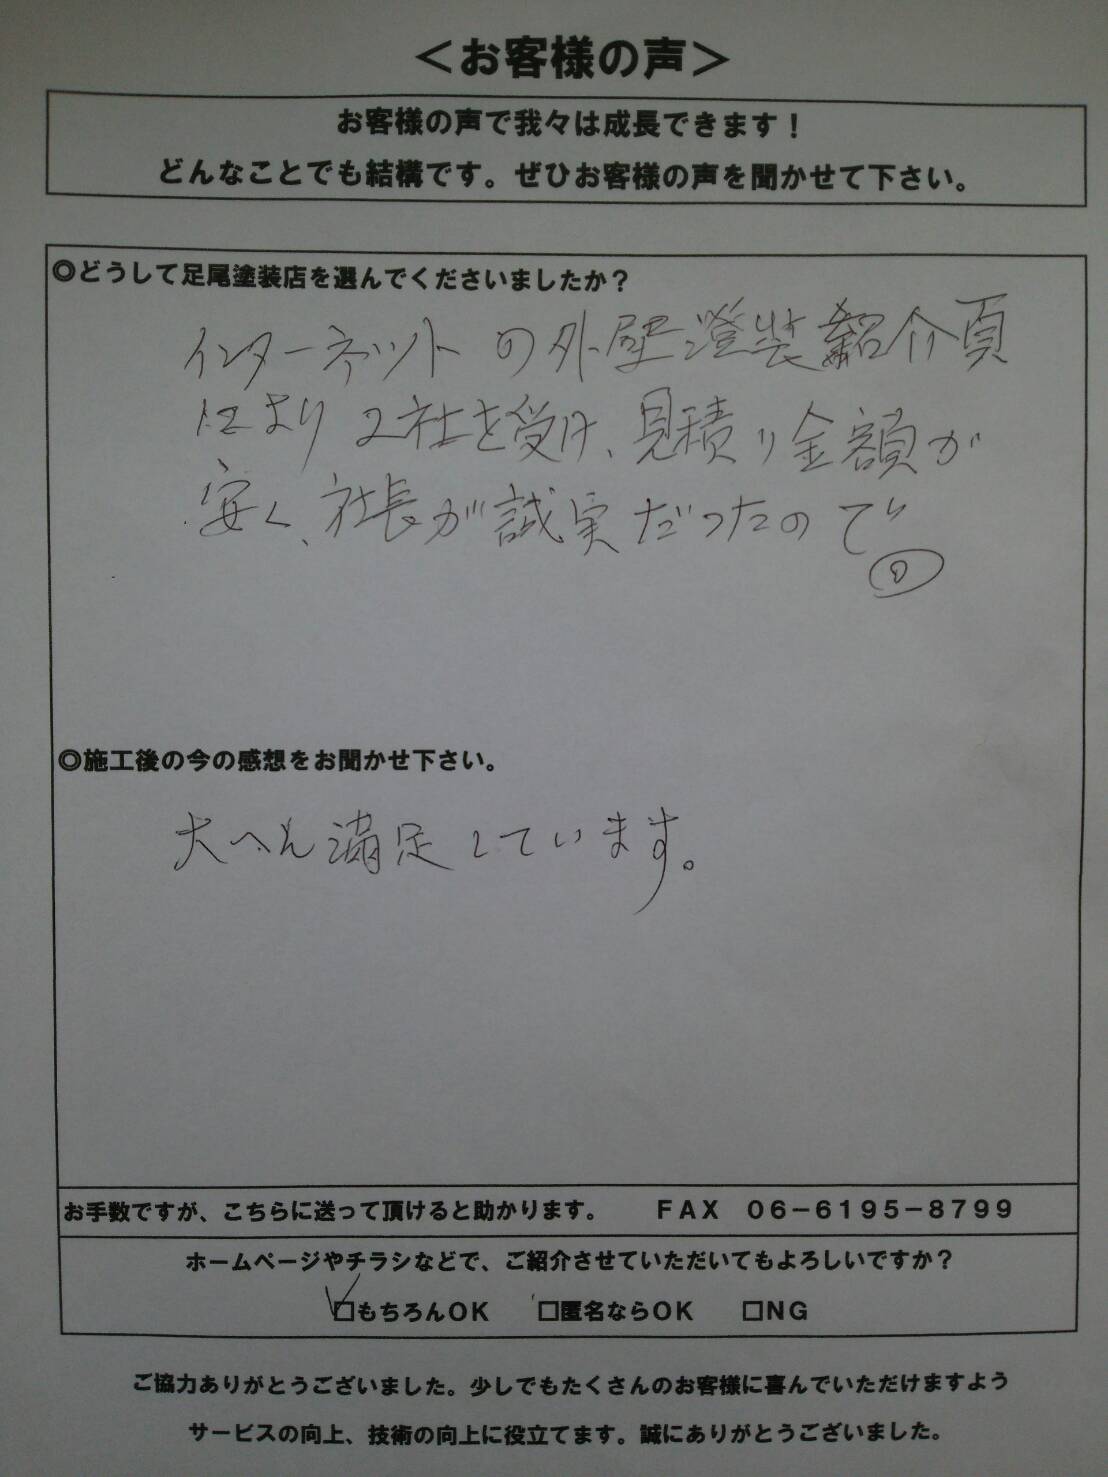 ＜お客様の声＞
お客様の声で我々は成長できます！
どんなことでも結構です。ぜひお客様の声を聞かせて下さい。
◎どうして足尾塗装店を選んでくださいましたか？
インターネットの外壁塗装紹介頁
により2社を受け、見積り金額が
安く、社長が誠実だったので
◎施工後の今の感想をお聞かせ下さい。
大へん満足しています。
お手数ですが、こちらに送って頂けると助かります。　ＦＡＸ　０６－６１９５－８７９９
ホームページやチラシなどで、ご紹介させていただいてもよろしいですか？
☑もちろんOK　□匿名ならOK　□NG
ご協力ありがとうございました。少しでもたくさんのお客様に喜んでいただけますよう
サービスの向上、技術の向上に役立てます。誠にありがとうございました。